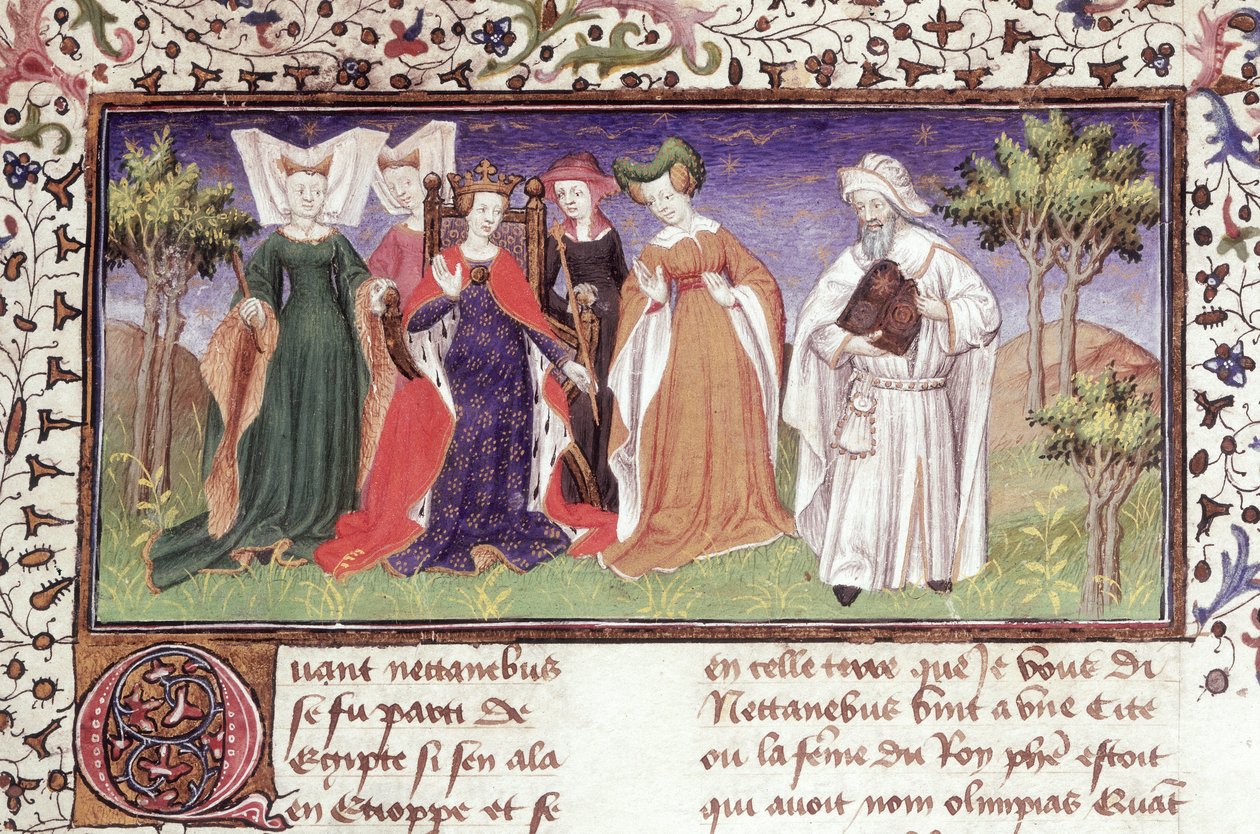 Quant nectanebus
se fu parti de
Egypte si sen ala
en Etioppe et se
en celle terre que Je vous di
Nectanebus vint a vne Cite
ou la fem̄e du Roy phē estoit
qui auoit nom olimpias Quāt